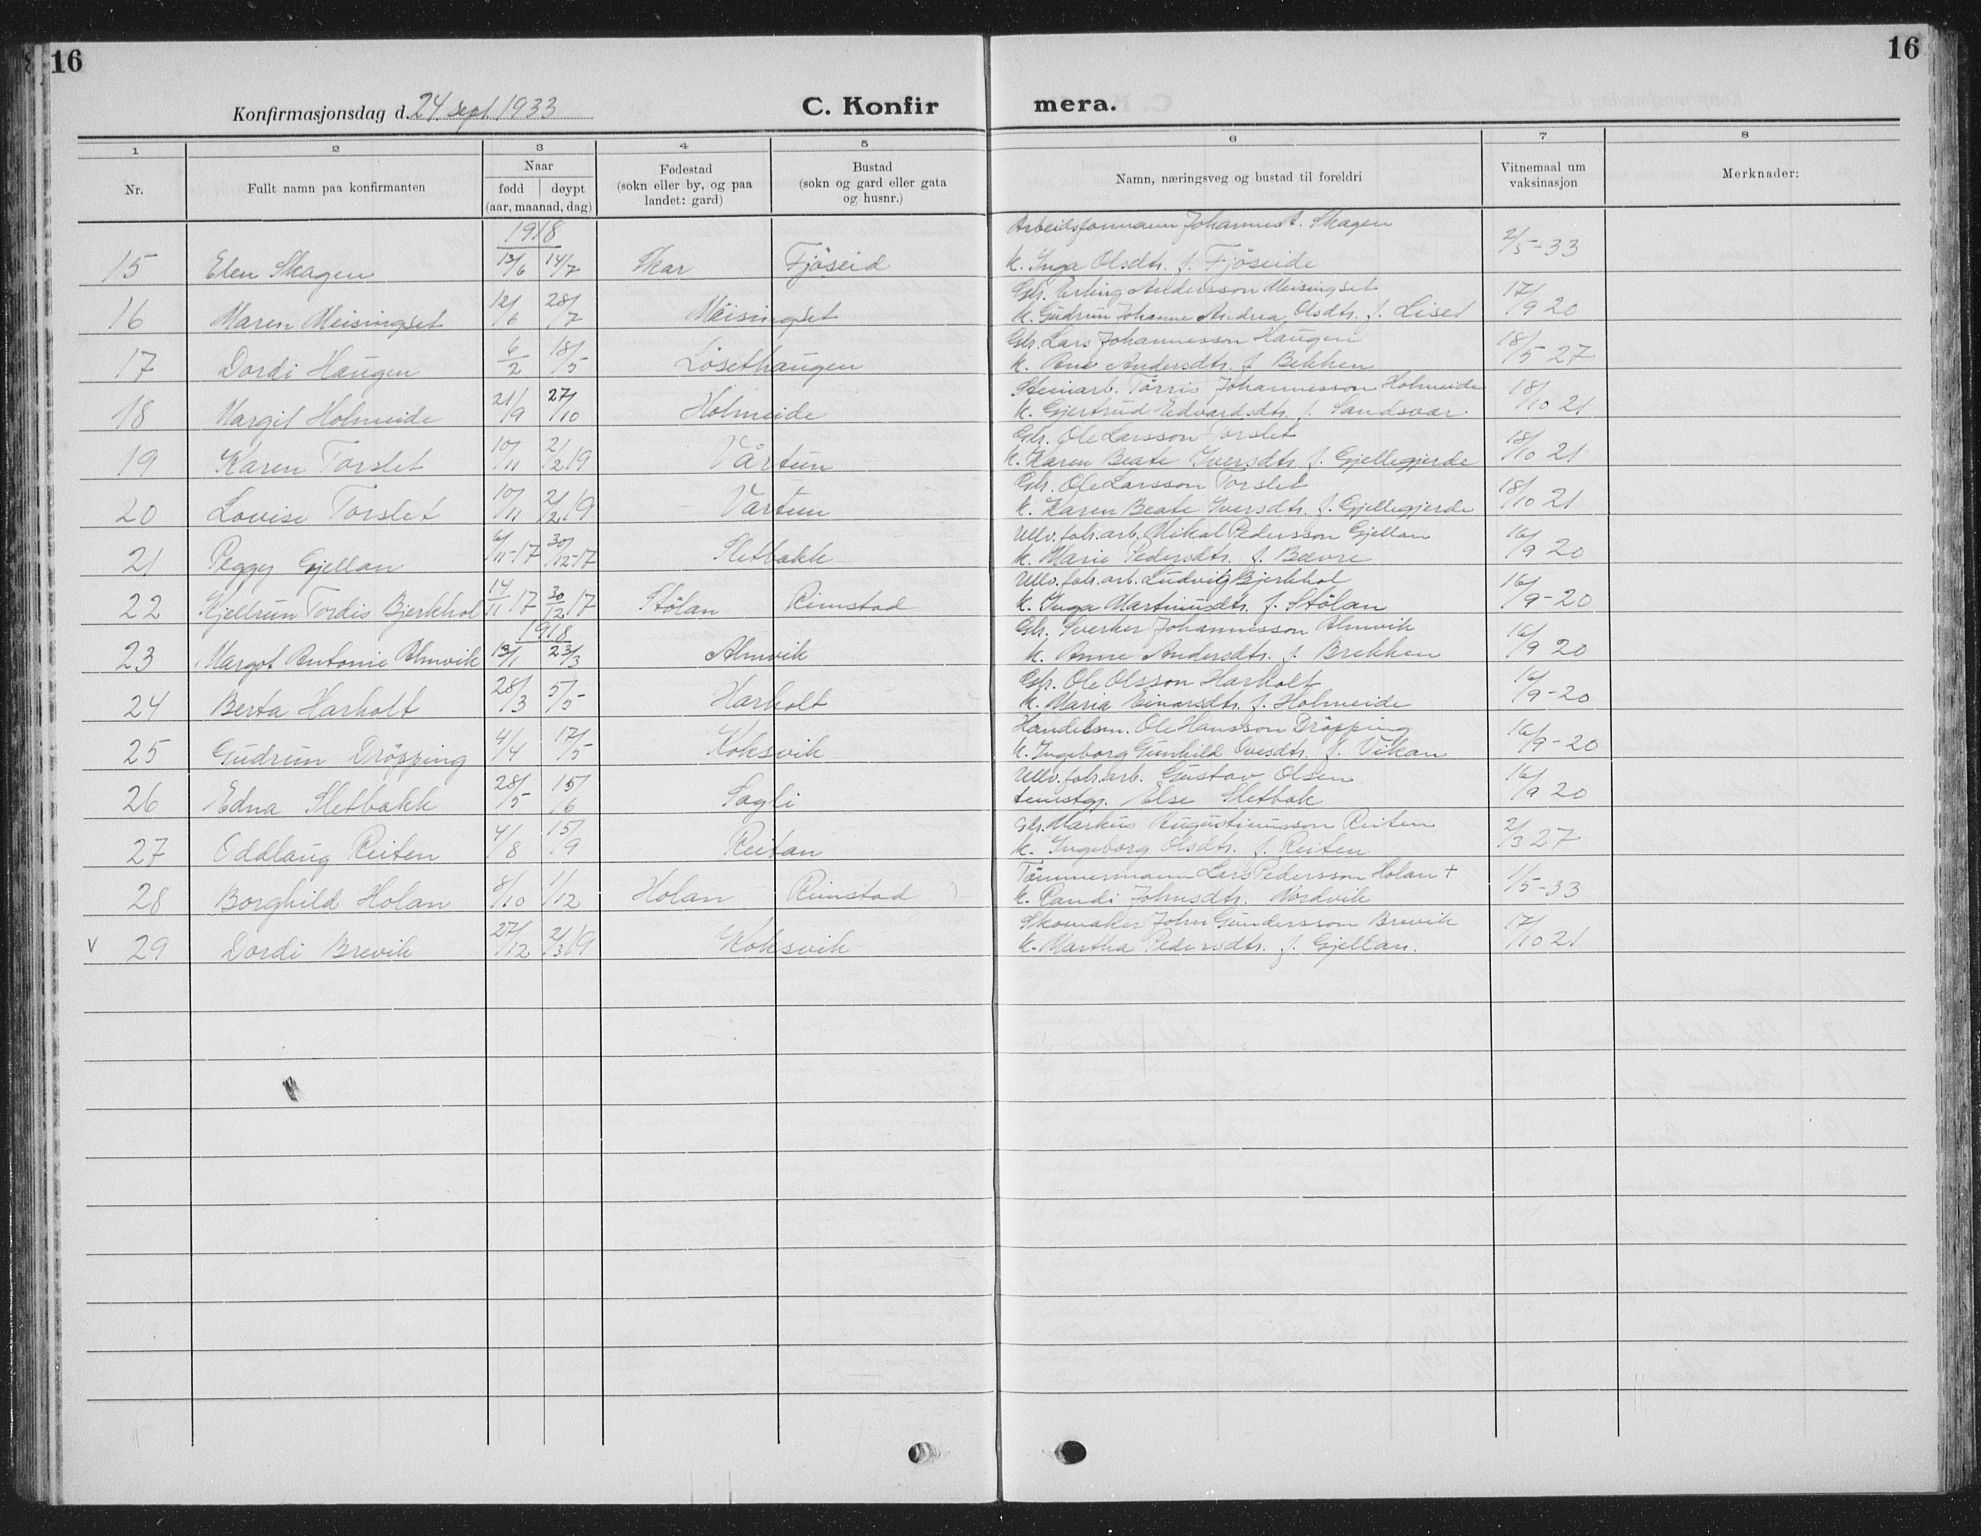 16
16
Konfirmasjonsdag d. 24. sept. 1933
C. Konfir mera.
1 2 3 4 5 6 7 8
Nr.
Fullt namn paa konfirmanten
Naar
fødd døypt
(aar, maanad, dag)
Fødestad
(sokn eller by, og paa
landet: gard)
Bustad
(sokn og gard eller gata
og husnr.)
Namn, næringsveg og bustad til foreldri
Vitnemaal um
vaksinasjon
Merknader:
1918
Arbeidsformann Johannes A. Skagen
15 Elen Skagen 13/6 14/7 Skar Fjöseid k. Inga Olsdtr. f. Fjöseide 2/5-33
Gbr. Erling Andersson Meisingset
16 Maren Meisingset 12/6 28/7 Meisingset k. Gudrun Johanne Andrea Olsdtr. f. Liset 17/9 20
Gbr. Lars Johannesson Haugen
17 Dordi Haugen 6/2 18/5 Lösethaugen k. Ane Andersdtr. f. Bekken 18/5 27
Steinarb. Torris Johannesson Holmeide
18 Margit Holmeide 21/9 27/10 Holmeide k. Gjertrud Edvardsdtr. f. Sandsvar 18/10 21
Gbr. Ole Larsson Torslet
19 Karen Torslet 10/11 2/2 19 Vårtun k. Karen Beate Iversdtr. f. Gjellegjerde 18/10 21
Gbr. Ole Larsson Torslet
20 Lovise Torslet 10/11 2/2 19 Vårtun k. Karen Beate Iversdtr. f. Gjellegjerde 18/10 21
Ullv.fabr.arb. Mikal Pedersson Gjellan
21 Peggy Gjellan 6/11-17 30/12-17 Sletbakk k. Marie Pedersdtr. f. Bævre 16/9 20
Ullv.fabr.arb. Ludvig Bjerkhol
22 Kjellrun Tordis Bjerkhol 17/11 17 30/12 17 Stölan Rimstad k. Inga Martinusdtr. f. Stölan 16/9-20
1918
Gbr. Sverker Johannesson Almvik
23 Margot Antonie Almvik 13/1 23/3 Almvik k. Anne Andersdtr. f. Brekken 16/9 20
Gbr. Ole Olsson Harholt
24 Berta Harholt 28/3 5/5 Harholt k. Maria Einarsdtr. f. Holmeide 16/9-20
Handelsm. Ole Hansson Dröpping
25 Gudrun Dröpping 4/4 17/5 Koksvik k. Ingeborg Gunhild Ovesdtr. f. Vikan 16/9-20
Ullv.fabr.arb. Gustav Olsen
26 Edna Sletbakk 28/5 15/6 Sagli tenestgj. Else Sletbak 16/9 20
Gbr. Markus Augustinusson Reiten
27 Oddlaug Reiten 4/8 15/9 Reitan k. Ingeborg Olsdtr. f. Reiten 2/3 27
Tömmermann Lars Pedersson Holan +
28 Borghild Holan 8/10 1/12 Holan Rimstad k. Randi Johnsdtr. Nordvik 1/5-33
Skomaker John Gundersson Brevik
v 29 Dordi Brevik 27/12 2/3 19 Koksvik k. Martha Pedersdtr. f. Gjellan. 17/10 21